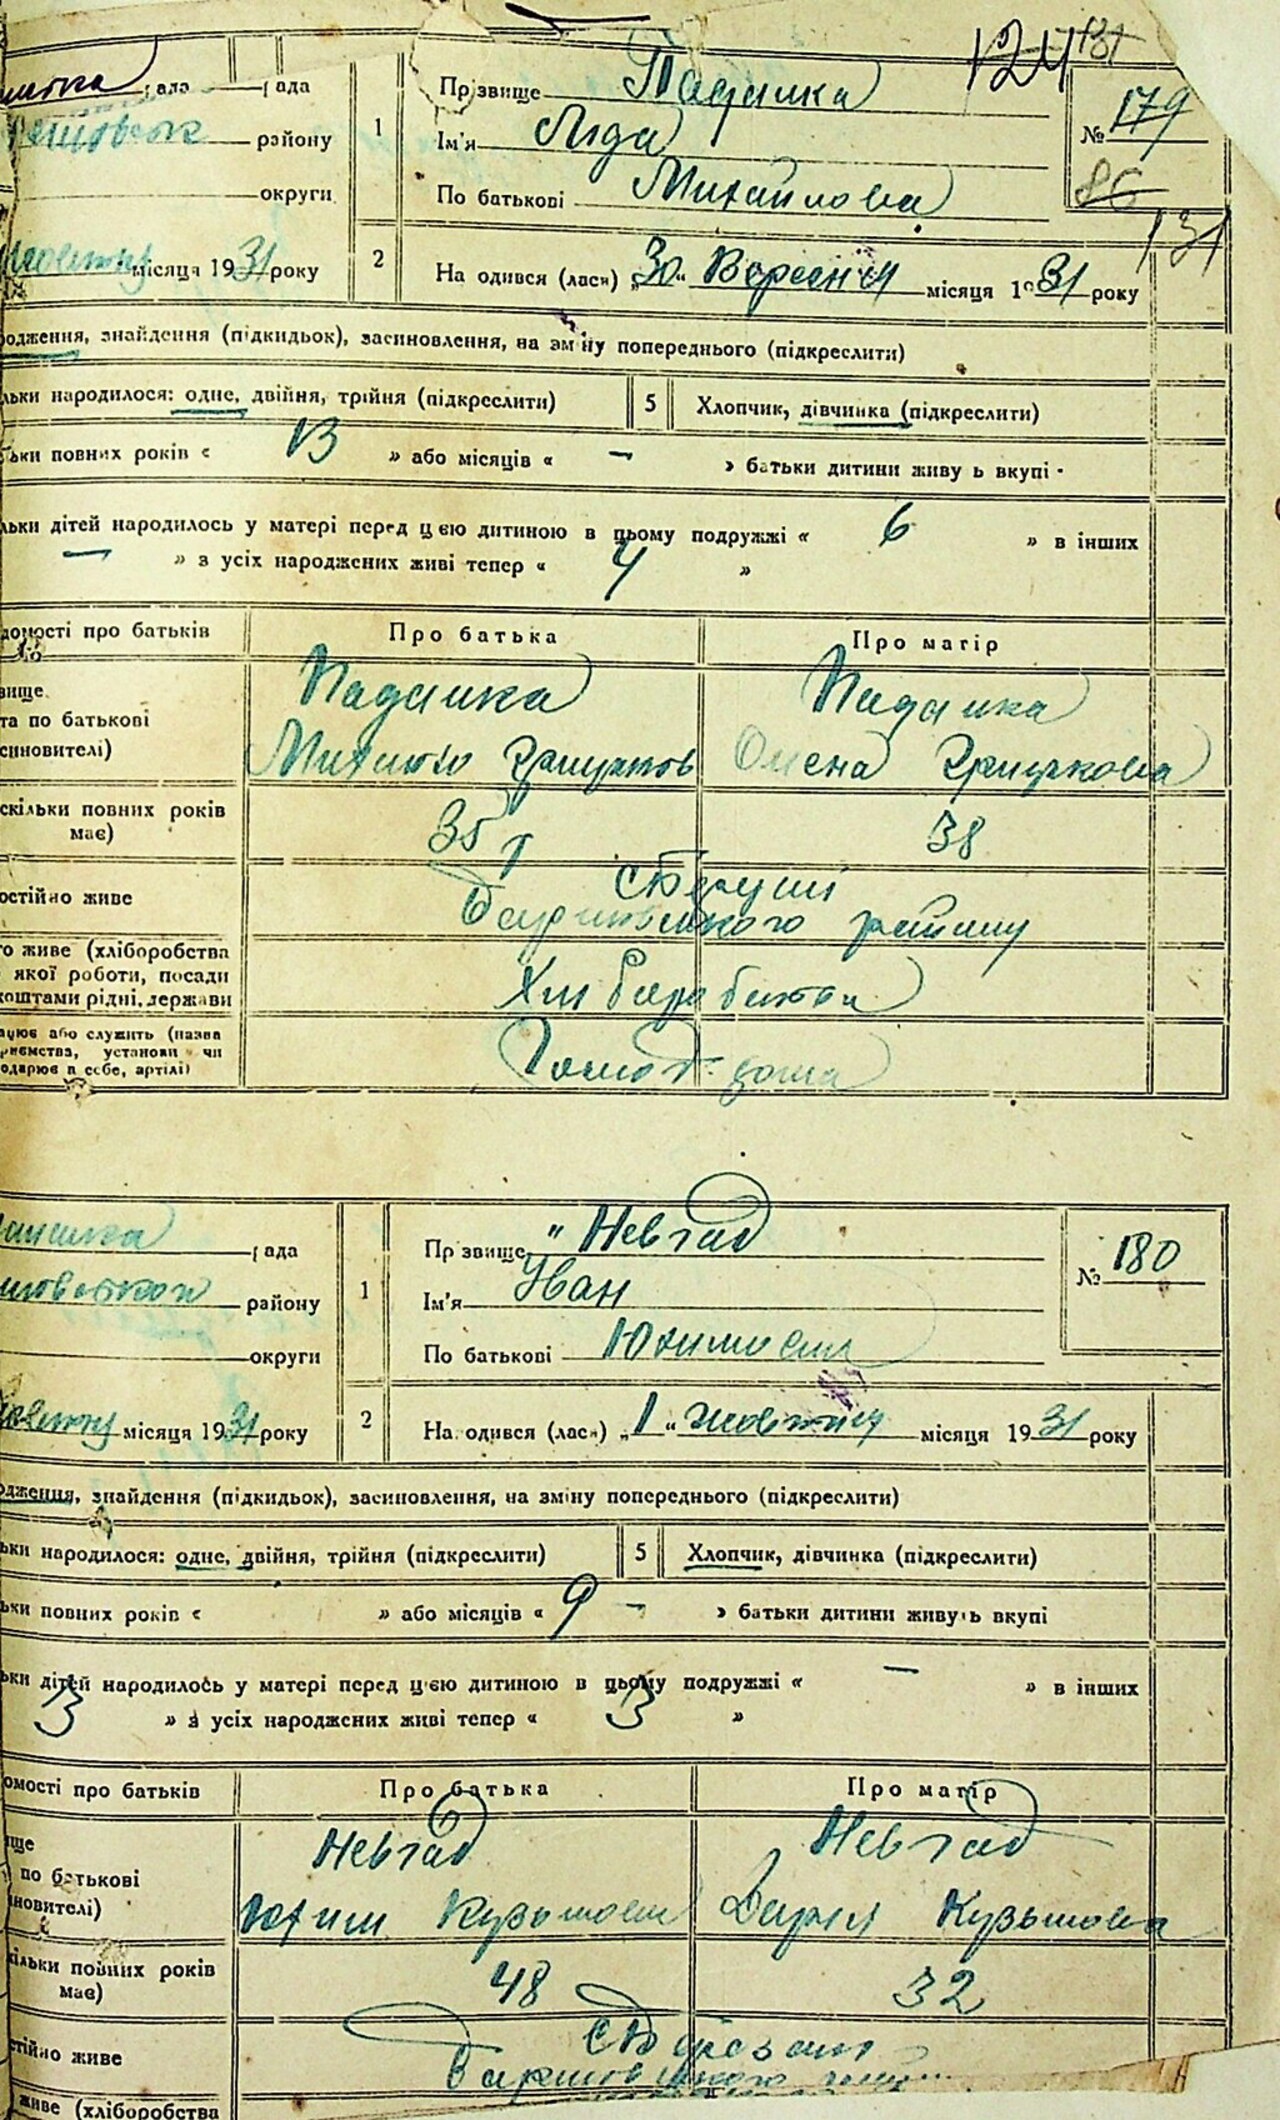 124 131
рада рада
району
округи
місяця 1931 року
1
Прізвище Падалка
Ім'я Ліда
По батькові Михайлова
№ 179
86
131
2
На одився (лась) „30“ Вересня місяця 1931 року
родження, знайдення (підкидьок), засиновлення, на зміну попереднього (підкреслити)
льки народилося: одне, двійня, трійня (підкреслити) 5 Хлопчик, дівчинка (підкреслити)
льки повних років « 13 » або місяців « – » батьки дитини живуть вкупі
льки дітей народилось у матері перед цією дитиною в цьому подружжі « 6 » в інших
— » з усіх народжених живі тепер « 4 »
домості про батьків Про батька Про матір
звище Падалка Падалка
та по батькові Михайло Олена
синовителі)
скільки повних років 35 р 38
має)
остійно живе
району
го живе (хліборобства
якої роботи, посади
коштами рідні, держави
ацює або служить (назва
риємства, установи чи
одарює в себе, артілі)
рада
району
округи
місяця 1931 року
1
Прізвище „Невгад
Ім'я Іван
По батькові
№ 180
2
На одився (лась) „1“ жовтня місяця 1931 року
одження, знайдення (підкидьок), засиновлення, на зміну попереднього (підкреслити)
ьки народилося: одне, двійня, трійня (підкреслити) 5 Хлопчик, дівчинка (підкреслити)
ьки повних років « » або місяців « 9 – » батьки дитини живуть вкупі
ьки дітей народилось у матері перед цією дитиною в цьому подружжі « — » в інших
3 » з усіх народжених живі тепер « 3 »
омості про батьків Про батька Про матір
ище Невгад Невгад
по батькові Юхим Дарія Кузьмова
иновителі)
кільки повних років 48 32
має)
стійно живе
живе (хліборобства